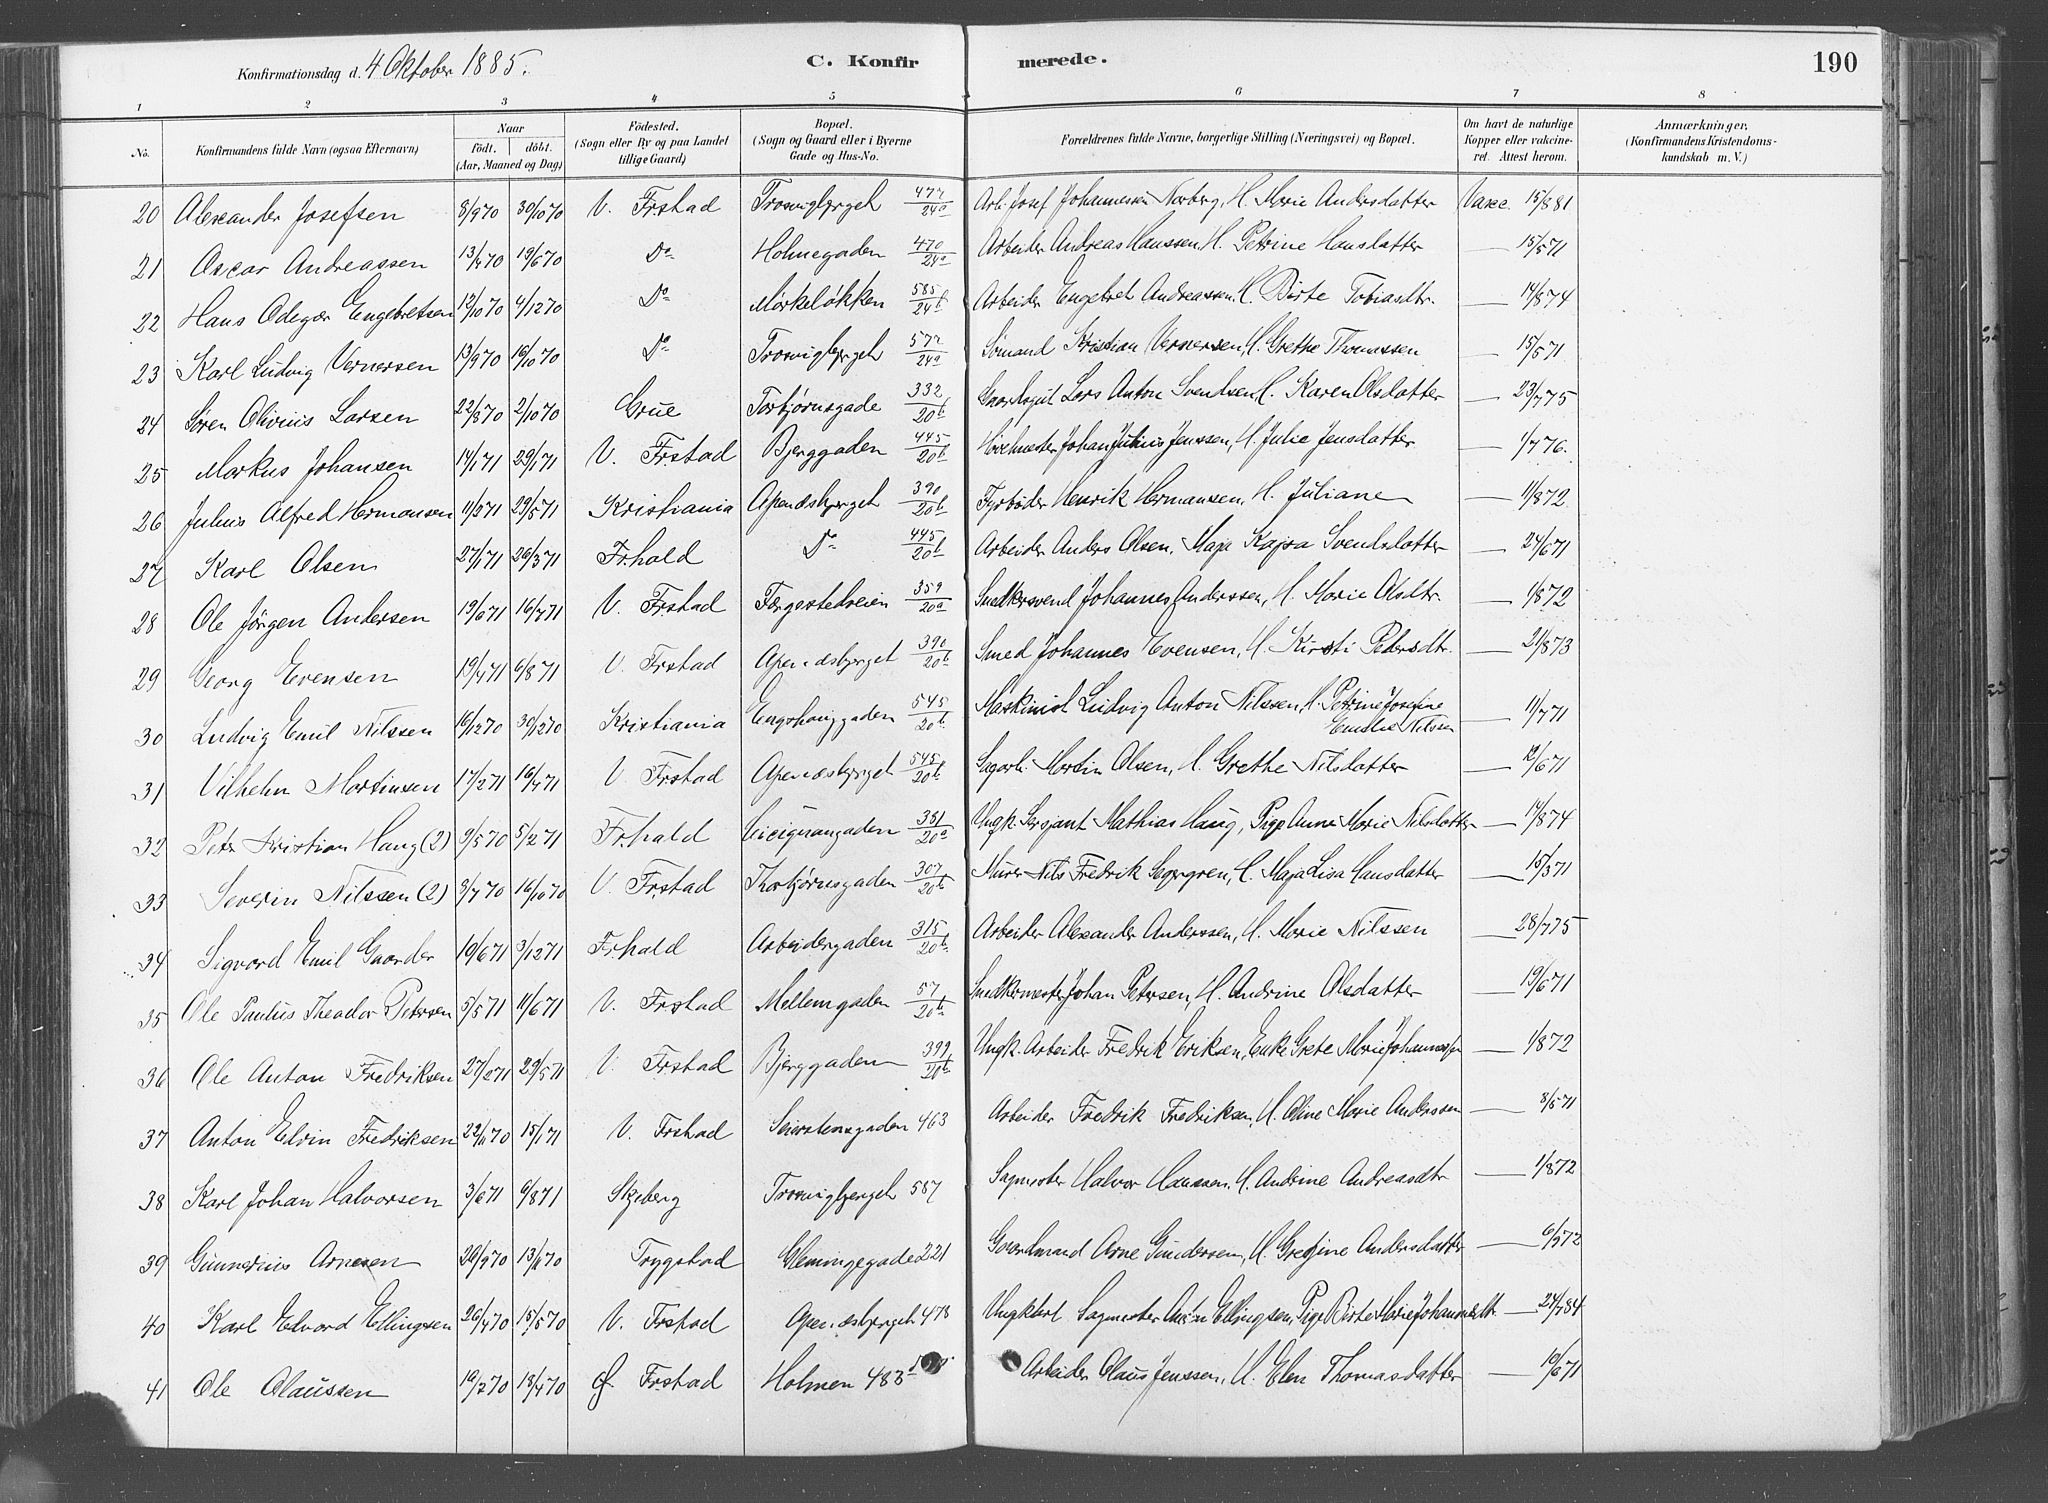 Konfirmationsdag d. 4 Oktober 1885. C. Konfirmerede. 190
1 2 3 4 5 6 7 8
No. Konfirmandens fulde Navn (ogsaa Efternavn) Naar födt. döbt. (Aar, Maaned og Dag) Födested. (Sogn eller By og paa Landet tillige Gaard) Bopæl. (Sogn og Gaard eller i Byerne Gade og Hus-No. Forældrenes fulde Navne, borgerlige Stilling (Næringsvei) og Bopæl. Om havt de naturlige Kopper eller vakcineret. Attest herom. Anmærkninger. (Konfirmandens Kristendomskundskab m. V.)
20 Alexander Josefsen 8/9 70 30/10 70 V. Frstad Trosvigbjerget 477/24a Arb. Josef Johannessen Norberg, H. Marie Andersdatter Vacc. 15/8 81
21 Oscar Andreassen 13/4 70 19/6 70 Do Holmegaden 470/24a Arbeider Andreas Hanssen, H. Petrine Hansdatter — 15/5 71
22 Hans Odegær Engebretsen 12/10 70 4/12 70 Do Mørkeløkken 585/24b Arbeider Engebret Andreassen, H. Birte Tobiasdtr. — 14/8 74
23 Karl Ludvig Vernersen 13/9 70 16/10 70 Do Trosvigbjerget 577/24a Sømand Kristian Vernersen, H. Grethe Thomassen — 15/5 71
24 Søren Olivius Larsen 22/8 70 2/10 70 Grue Torbjørnsgade 332/20b Lars Anton Svendsen, H. Karen Olsdatter — 23/7 75
25 Markus Johansen 14/1 71 29/1 71 V. Frstad Bjerggaden 445/20b Johan Julius Jenssen, H. Julie Jensdatter — 1/7 76.
26 Julius Alfred Hermansen 11/2 71 29/5 71 Kristiania Apenæsbjerget 390/20b Fyrbøder Henrik Hermansen, H. Juliane — 11/8 72
27 Karl Olsen 27/1 71 26/3 71 Fr.hald Do 445/20b Arbeider Anders Olsen, Maja Kajsa Svendsdatter — 24/6 71
28 Ole Jørgen Andersen 19/6 71 16/7 71 V. Frstad Færgestedsveien 359/20a Snedkersvend Johannes Anderssen, H. Marie Olsdtr. — 1/8 72
29 Georg Evensen 19/4 71 6/8 71 V. Frstad Apenæsbjerget 390/20b Smed Johannes Evensen, H. Kirsti Pedersdtr. — 21/8 73
30 Ludvig Emil Nilssen 16/12 70 30/12 70 Kristiania Enghauggaden 545/20b Maskinist Ludvig Anton Nilssen, H. Petrine Josefine Emilie Nilssen — 11/7 71
31 Vilhelm Martinsen 17/2 71 16/4 71 V. Frstad Apenæsbjerget 545/20b Sagarb. Martin Olsen, H. Grethe Nilsdatter — 12/6 71
32 Peter Kristian Haug (2) 9/5 70 5/2 71 Fr.hald Cicignongaden 351/20a Ungk. Sersjant Mathias Haug, Pige Anne Marie Nilsdatter — 14/8 74
33 Severin Nilssen (2) 3/7 70 16/10 70 V. Frstad Thorbjørnsgaden 307/20b Murer Nils Fredrik Segergren, H. Maja Lisa Hansdatter — 15/3 71
34 Sigvard Emil Gaarder 19/6 71 3/12 71 Fr.hald Arbeidergaden 315/20b Arbeider Alexander Anderssen, H. Marie Nilssen — 28/7 75
35 Ole Paulus Theodor Petersen 5/5 71 11/6 71 V. Frstad Mellemgaden 57/20b Snedkermester Johan Petersen, H. Andrine Olsdatter — 19/6 71
36 Ole Anton Fredriksen 27/2 71 29/5 71 V. Frstad Bjerggaden 399/20b Ungk. Arbeider Fredrik Eriksen, Enke Grete Marie — 1/8 72
37 Anton Elvin Fredriksen 22/11 70 15/1 71 V. Frstad Seierstensgaden 463 Arbeider Fredrik Fredriksen, H. Oline Marie Anderssen — 8/5 71
38 Karl Johan Halvorsen 3/6 71 6/8 71 Skjeberg Trosvigbjerget 587 Sagmester Halvor Hanssen, H. Andrine Andreasdtr — 1/8 72
39 Gunnerius Arnesen 26/9 70 13/11 70 Trygstad Glemmingegade 221 Gaardmand Arne Gundersen, H. Gregine Andersdatter — 6/5 72
40 Karl Edvard Ellingsen 26/4 70 15/5 70 V. Frstad Apenæsbjerget 478 Ungkarl Sagmester Ellingsen, Pige Birte Marie Johannesdtr. — 24/7 84
41 Ole Olaussen 16/2 70 18/4 70 Ø. Frstad Holmen 483 Arbeider Olaus Jenssen, H. Elen Thomasdatter — 10/6 71